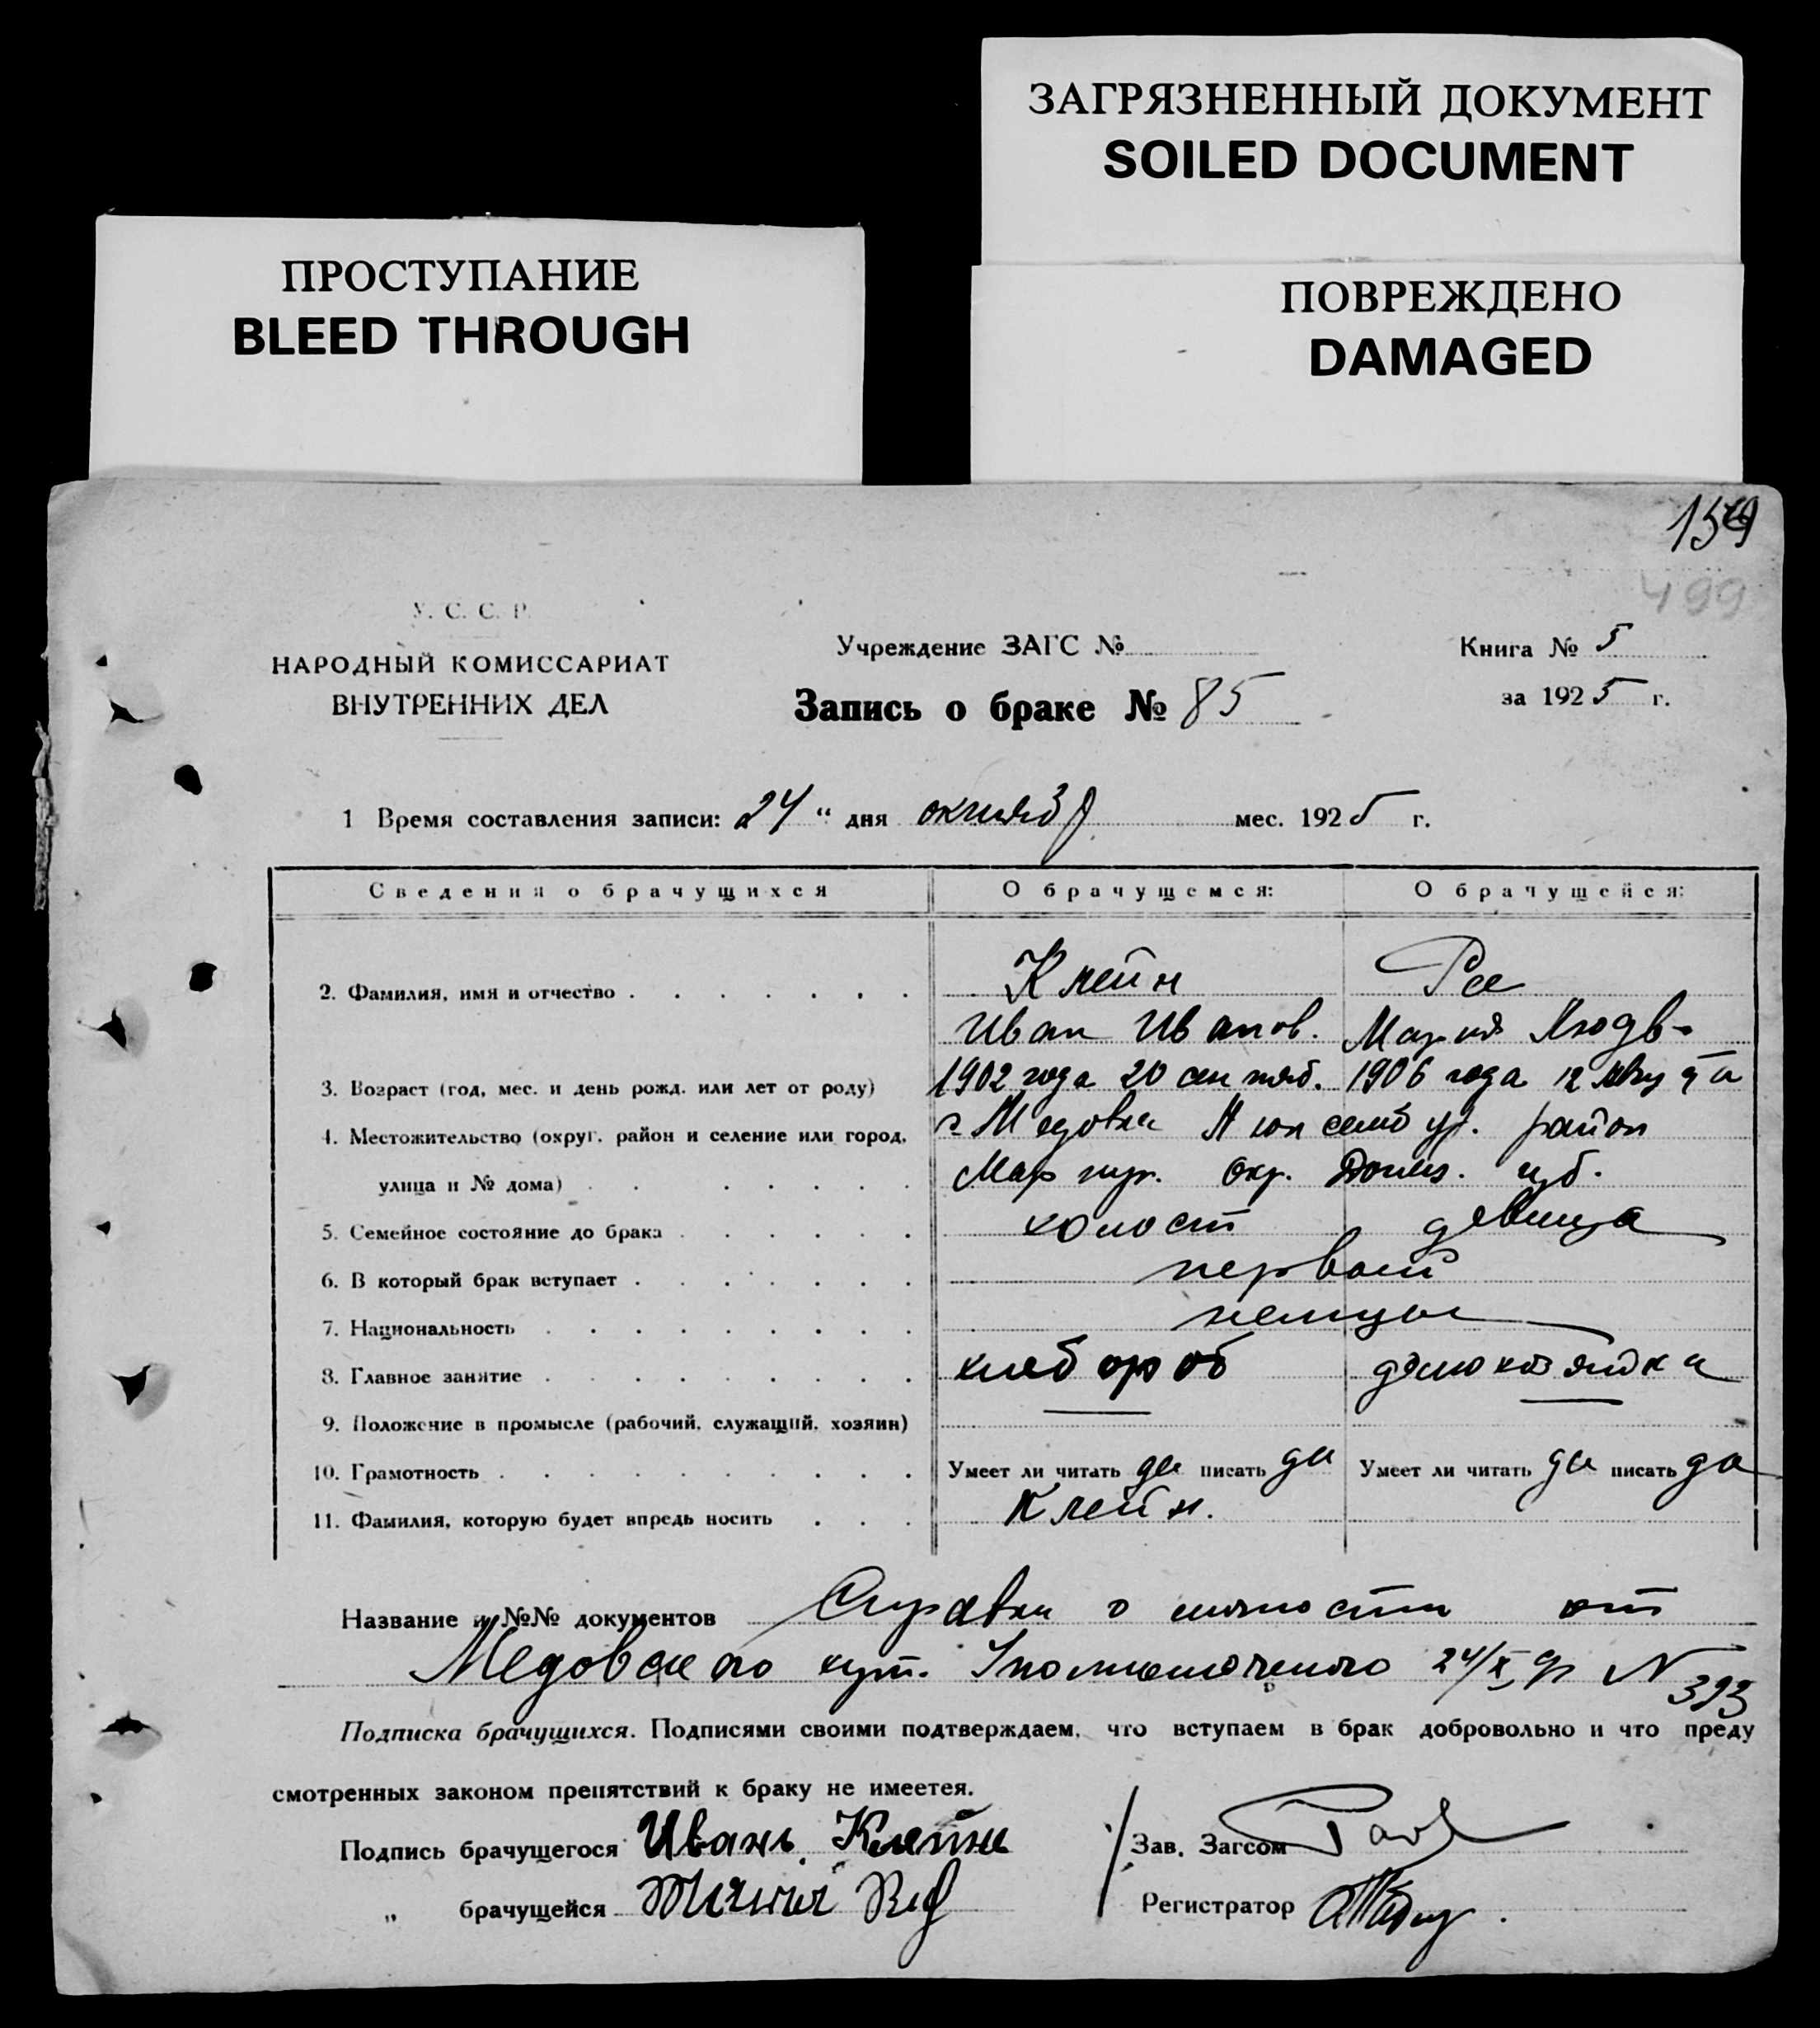 ЗАГРЯЗНЕННЫЙ ДОКУМЕНТ
SOILED DOCUMENT
ПРОСТУПАНИЕ
BLEED THROUGH
ПОВРЕЖДЕНО
DAMAGED
499
У. С. С. Р.
НАРОДНЫЙ КОМИССАРИАТ
ВНУТРЕННИХ ДЕЛ
Учреждение ЗАГС №
Запись о браке № 85
Книга № 5
за 1925 г.
1 Время составления записи: 24 " дня октября мес. 1925 г.
Сведения о брачущихся О брачущемся: О брачущейся:
2. Фамилия, имя и отчество Клейн Рее
Иван Иванов. Мария Людв-
3. Возраст (год, мес. и день рожд. или лет от роду) 1902 года 20 сентяб. 1906 года 12 августа
4. Местожительство (округ, район и селение или город, Медовка район
улица и № дома) Мариуп. Окр. Донец. губ.
5. Семейное состояние до брака холост девица
6. В который брак вступает первый
7. Национальность немцы
8. Главное занятие хлебороб домохозяйка
9. Положение в промысле (рабочий, служащий, хозяин)
10. Грамотность Умеет ли читать да писать да Умеет ли читать да писать да
11. Фамилия, которую будет впредь носить Клейн.
Название и №№ документов Справки о личности от
Медовского хут. Уполномоченного 24/X № 393
Подписка брачущихся. Подписями своими подтверждаем, что вступаем в брак добровольно и что преду
смотренных законом препятствий к браку не имеется.
Подпись брачущегося Иванъ Клейнъ Зав. Загсом
„ брачущейся Регистратор